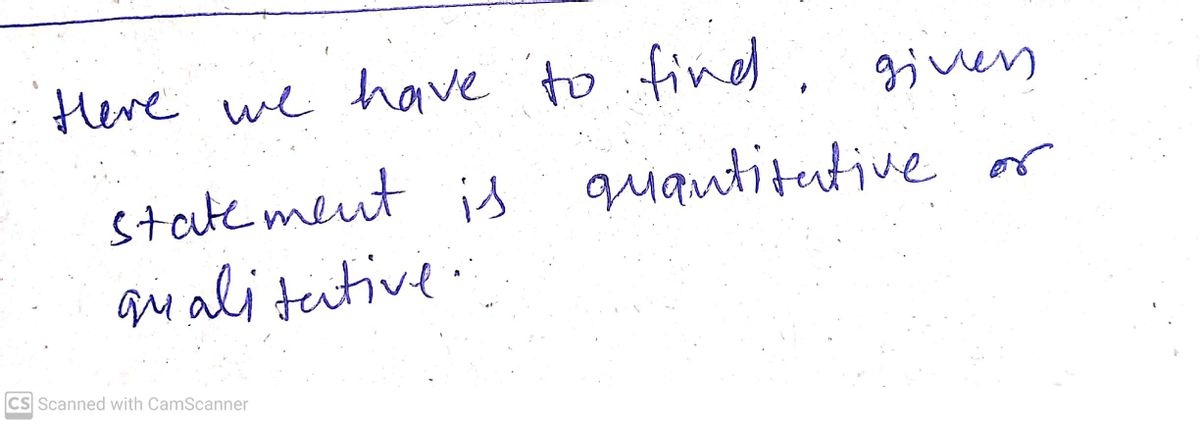 Here we have to find, given
statement is quantitative or
qualitative.
CS Scanned with CamScanner